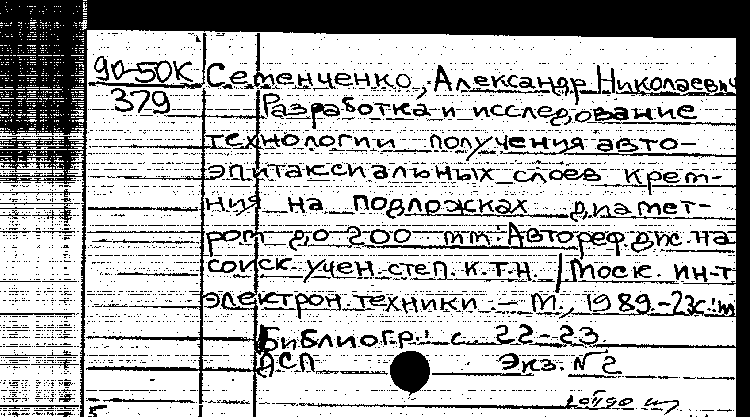 90-50К Семенченко, Александр Николаевич
379 Разработка и исследование
технологии получения авто-
эпитаксиальных слоев крем-
ния на подложках диамет-
ром до 200 мм: Автореф. дис. на
соиск. учен. степ. к.т.н. / Моск. ин-т
электрон. техники. – М., 1989. – 23с.:
Библиогр.: с 22-23.
ДСП Экз. № 2